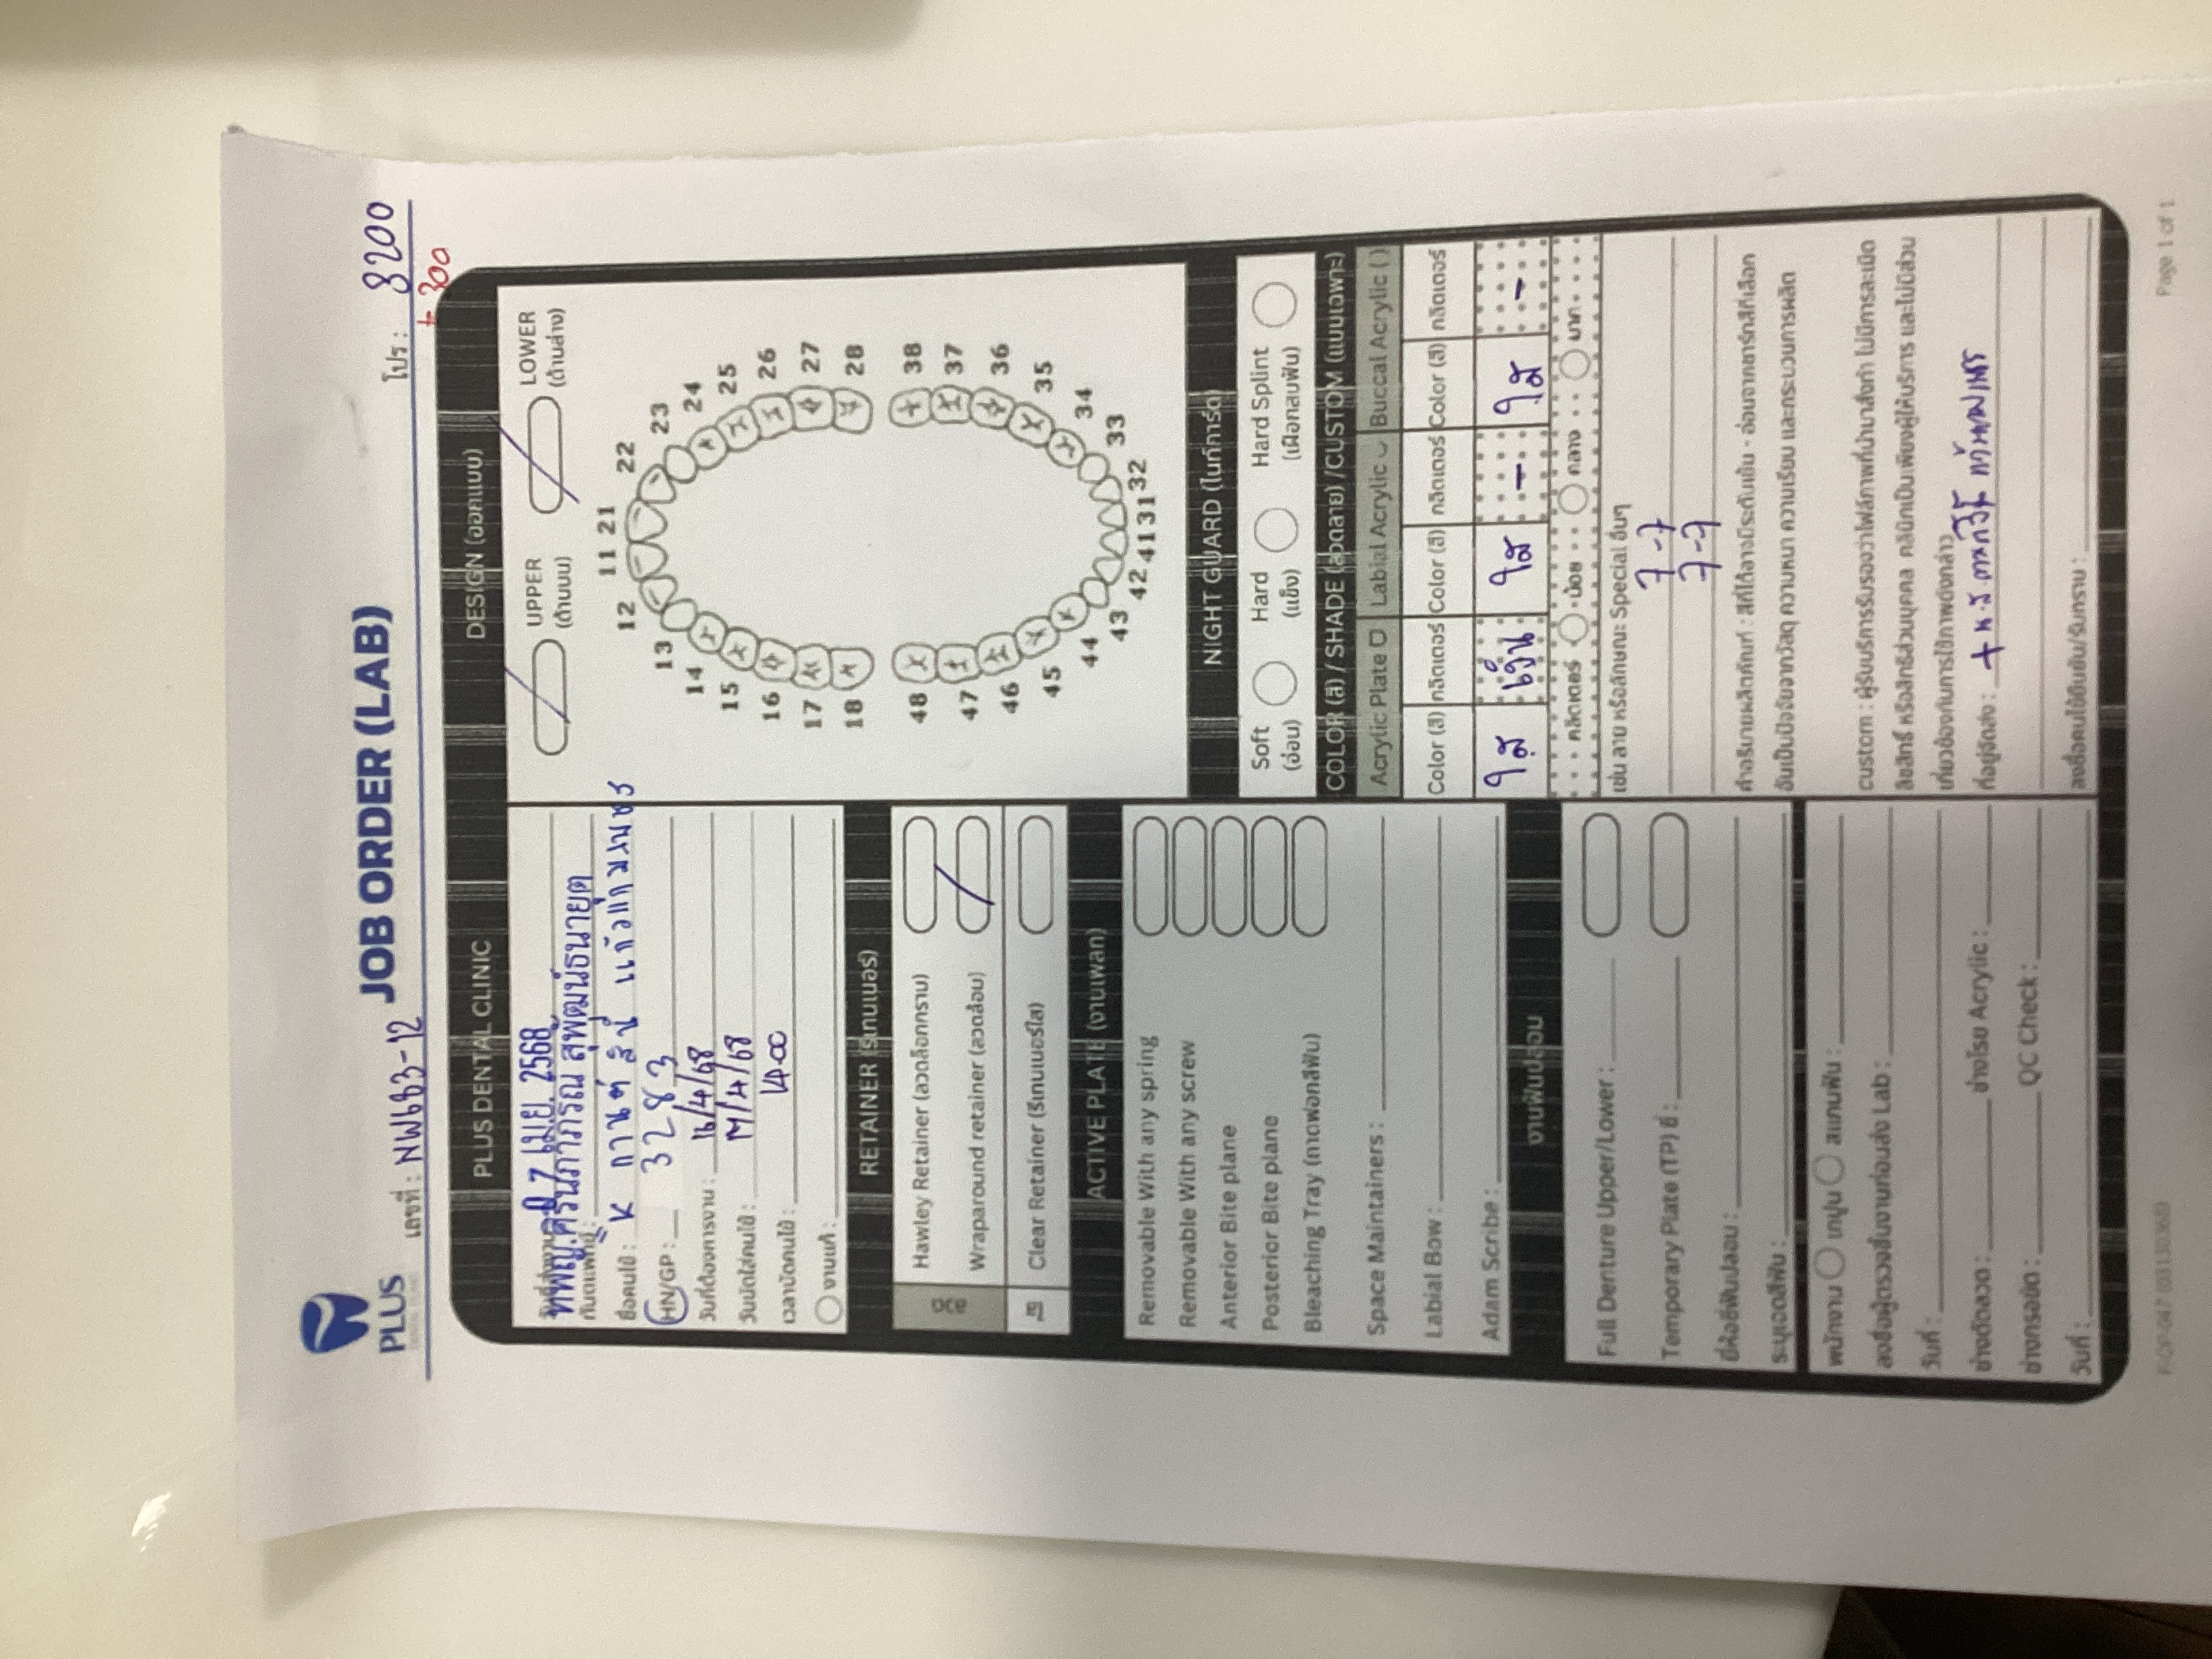 PLUS
JOB ORDER (LAB)
เลขที่ : NW683-12
โปร : 8200
+ 300
PLUS DENTAL CLINIC
วันที่ส่งงาน 07 เม.ย. 2568
ทันตแพทย์ : ทพญ.ศิรินภาภรณ์ สุพัฒน์ธนายุต
ชื่อคนไข้ : K กานต์สินี
HN/GP : 3283
วันที่ต้องการงาน : 16/4/68
วันนัดใส่คนไข้ : 17/4/68
เวลานัดคนไข้ : 14.00
งานแก้ :
RETAINER (รีเทนเนอร์)
ลวด
Hawley Retainer (ลวดล็อกกราม)
Wraparound retainer (ลวดล้อม)
ใส
Clear Retainer (รีเทนเนอร์ใส)
ACTIVE PLATE (งานเพลท)
Removable With any spring
Removable With any screw
Anterior Bite plane
Posterior Bite plane
Bleaching Tray (ถาดฟอกสีฟัน)
Space Maintainers :
Labial Bow :
Adam Scribe :
งานฟันปลอม
Full Denture Upper/Lower :
Temporary Plate (TP) ซี่ :
ยี่ห้อซี่ฟันปลอม :
ระบุเฉดสีฟัน :
พนักงาน เทปูน สแกนฟัน :
ลงชื่อผู้ตรวจชิ้นงานก่อนส่ง Lab :
วันที่ :
ช่างดัดลวด : ช่างโรย Acrylic :
ช่างกรอขัด : QC Check :
วันที่ :
DESIGN (ออกแบบ)
UPPER LOWER
(ด้านบน) (ด้านล่าง)
11 21
12 22
13 23
14 24
15 25
16 26
17 27
18 28
48 38
47 37
46 36
45 35
44 34
43 33
42 41 31 32
NIGHT GUARD (ไนท์การ์ด)
Soft Hard Hard Splint
(อ่อน) (แข็ง) (เฝือกสบฟัน)
COLOR (สี) / SHADE (ลวดลาย) /CUSTOM (แบบเฉพาะ)
Acrylic Plate Labial Acrylic Buccal Acrylic ( )
Color (สี) กลิตเตอร์ Color (สี) กลิตเตอร์ Color (สี) กลิตเตอร์
ใส เงิน ใส - ใส -
กลิตเตอร์ น้อย กลาง มาก
เช่น ลาย หรือลักษณะ Special อื่นๆ
7-7
7-7
คำอธิบายผลิตภัณฑ์ : สีที่ได้อาจมีระดับเข้ม - อ่อนจากชาร์ทสีที่เลือก
อันเป็นปัจจัยจากวัสดุ ความหนา ความเรียบ และกระบวนการผลิต
custom : ผู้รับบริการรับรองว่าไฟล์ภาพที่นำมาสั่งทำ ไม่มีการละเมิด
ลิขสิทธิ์ หรือสิทธิส่วนบุคคล คลินิกเป็นเพียงผู้ให้บริการ และไม่มีส่วน
เกี่ยวข้องกับการใช้ภาพดังกล่าว
ที่อยู่จัดส่ง : + น.ส.
ลงชื่อคนไข้ยืนยัน/รับทราบ :
F-OP-047 (03130368)
Page 1 of 1